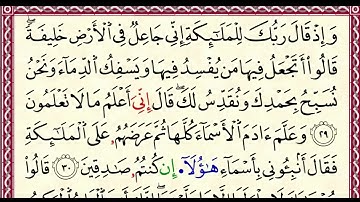 وَإِذْ قَالَ رَبُّكَ لِلْمَلَٰٓئِكَةِ إِنِّي جَاعِلٌ فِي الْأَرْضِ خَلِيفَةً
قَالُوٓا۟ أَتَجْعَلُ فِيهَا مَن يُفْسِدُ فِيهَا وَيَسْفِكُ الدِّمَآءَ وَنَحْنُ
نُسَبِّحُ بِحَمْدِكَ وَنُقَدِّسُ لَكَ قَالَ إِنِّيَ أَعْلَمُ مَا لَا تَعْلَمُونَ
٢٩ وَعَلَّمَ ءَادَمَ الْأَسْمَآءَ كُلَّهَا ثُمَّ عَرَضَهُمْ عَلَى الْمَلَٰٓئِكَةِ
فَقَالَ أَنۢبِـُٔونِي بِأَسْمَآءِ هَٰٓؤُلَآءِ ان كُنتُمْ صَٰدِقِينَ ٣٠ قَالُوا۟